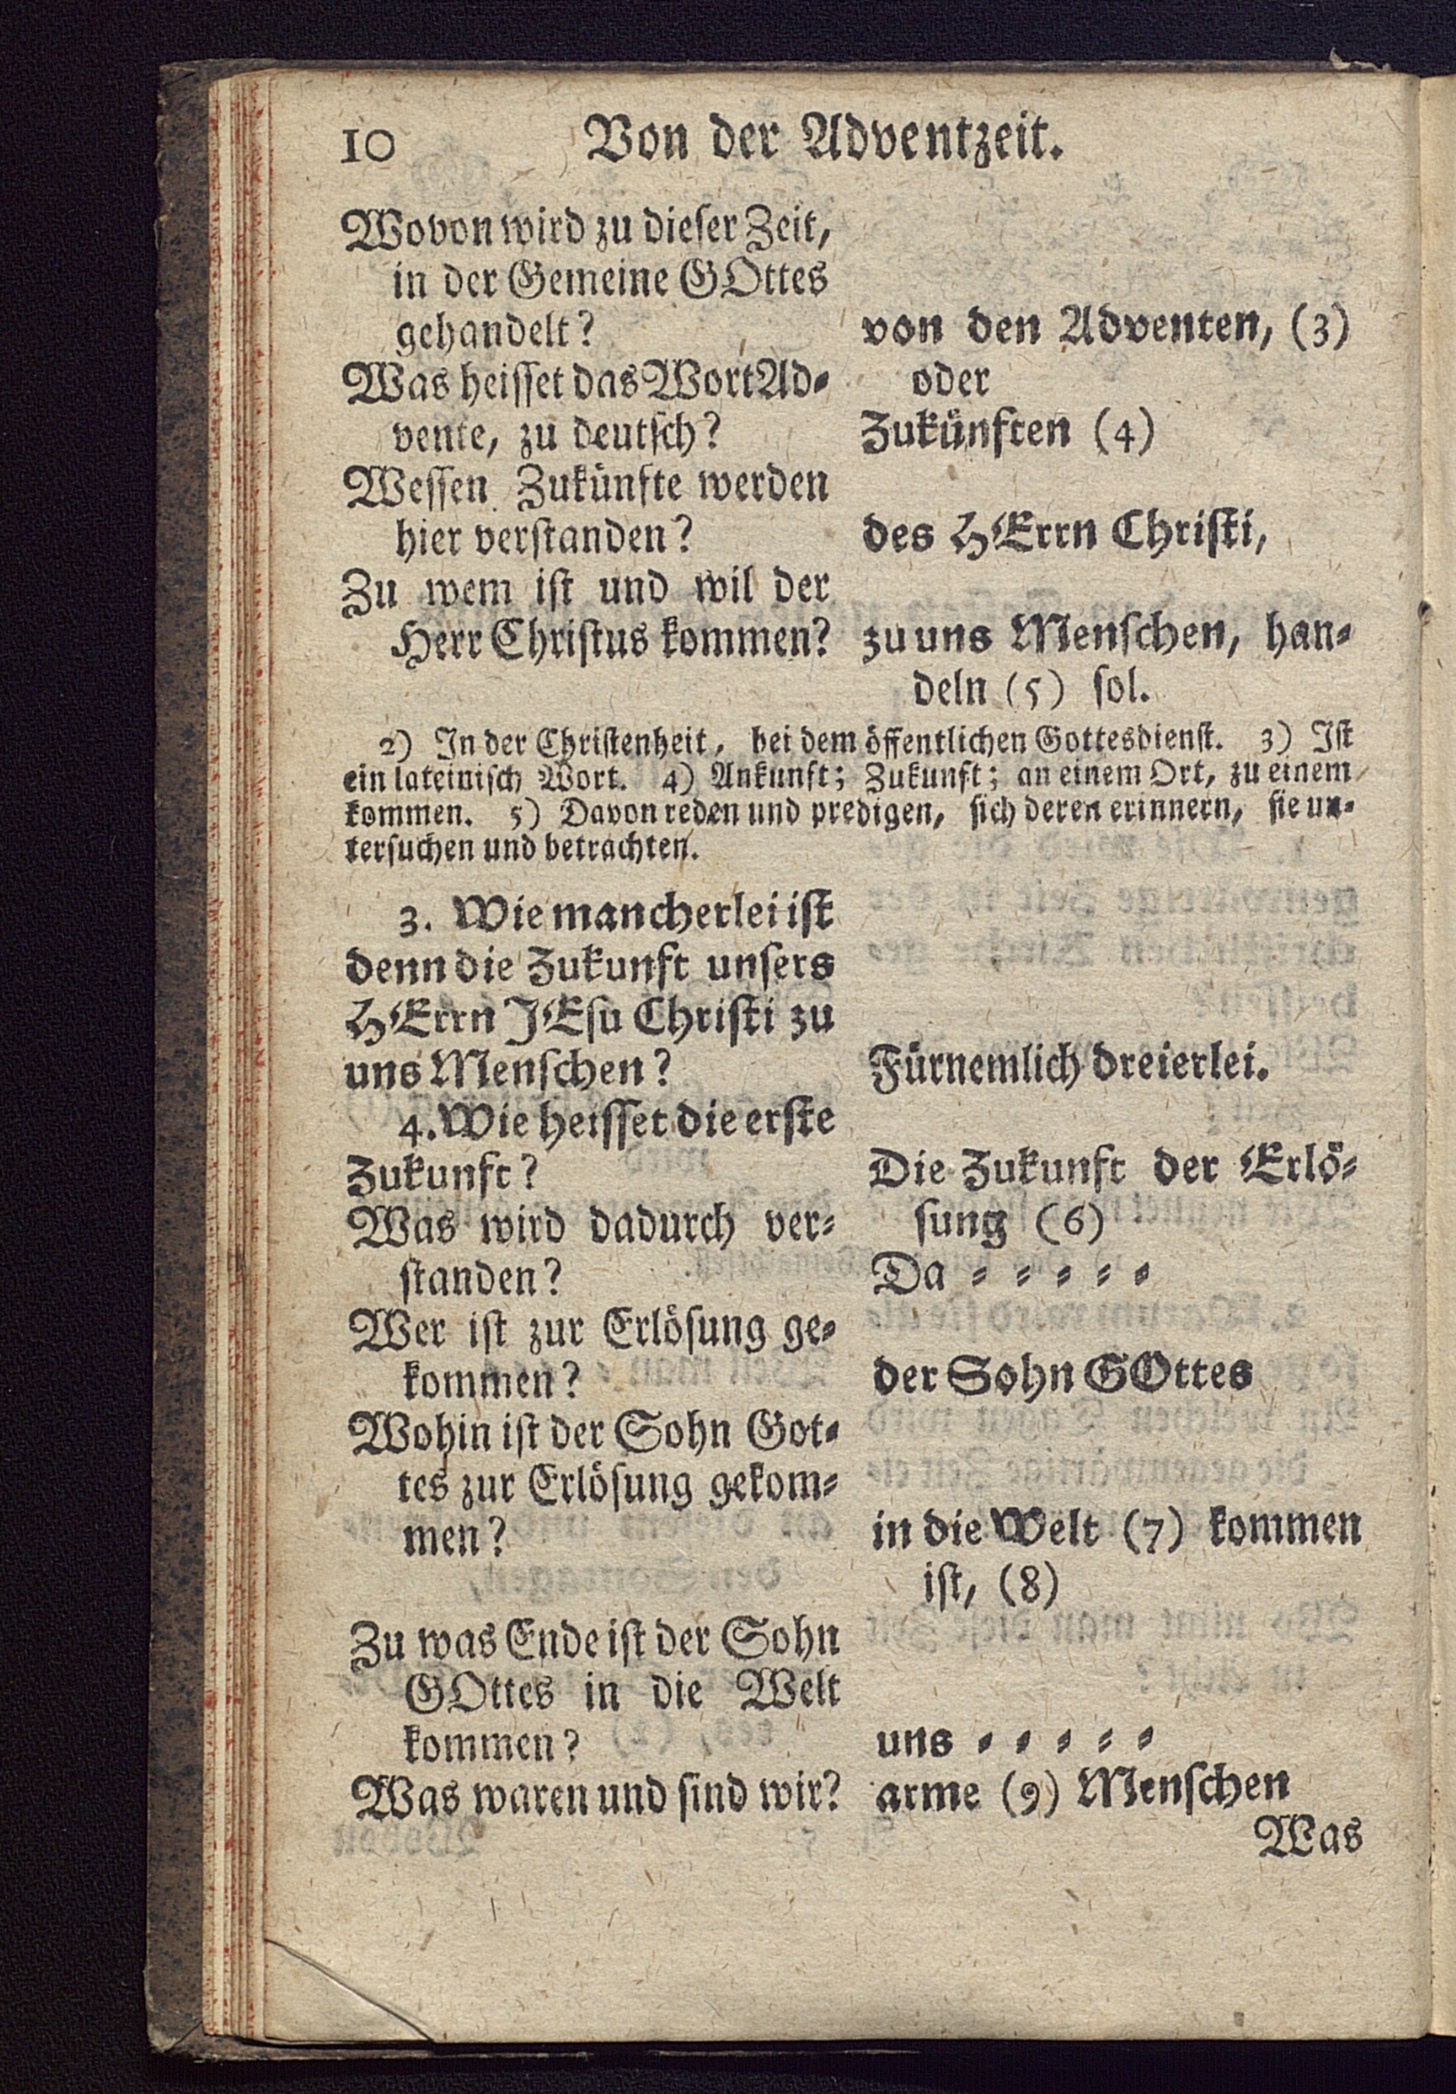 10 Von der Adventzeit.
Wovon wird zu dieser Zeit,
in der Gemeine GOttes
gehandelt?
von den Adventen, (3)
Was heisset das Wort Ad-
oder
vente, zu deutsch?
Zukünften (4)
Wessen Zukünfte werden
hier verstanden?
des HErrn Christi,
Zu wem ist und wil der
Herr Christus kommen?
zu uns Menschen, han-
deln (5) sol.
2) In der Christenheit, bei dem öffentlichen Gottesdienst. 3) Ist
ein lateinisch Wort. 4) Ankunft; Zukunft; an einem Ort, zu einem
kommen. 5) Davon reden und predigen, sich deren erinnern, sie un-
tersuchen und betrachten.
3. Wie mancherlei ist
denn die Zukunft unsers
HErrn JEsu Christi zu
uns Menschen?
Fürnemlich dreierlei.
4. Wie heisset die erste
Zukunft?
Die Zukunft der Erlö-
Was wird dadurch ver-
sung (6)
standen?
Da - - - - -
Wer ist zur Erlösung ge-
kommen?
der Sohn GOttes
Wohin ist der Sohn Got-
tes zur Erlösung gekom-
men?
in die Welt (7) kommen
ist, (8)
Zu was Ende ist der Sohn
GOttes in die Welt
kommen?
uns - - - - -
Was waren und sind wir?
arme (9) Menschen
Was